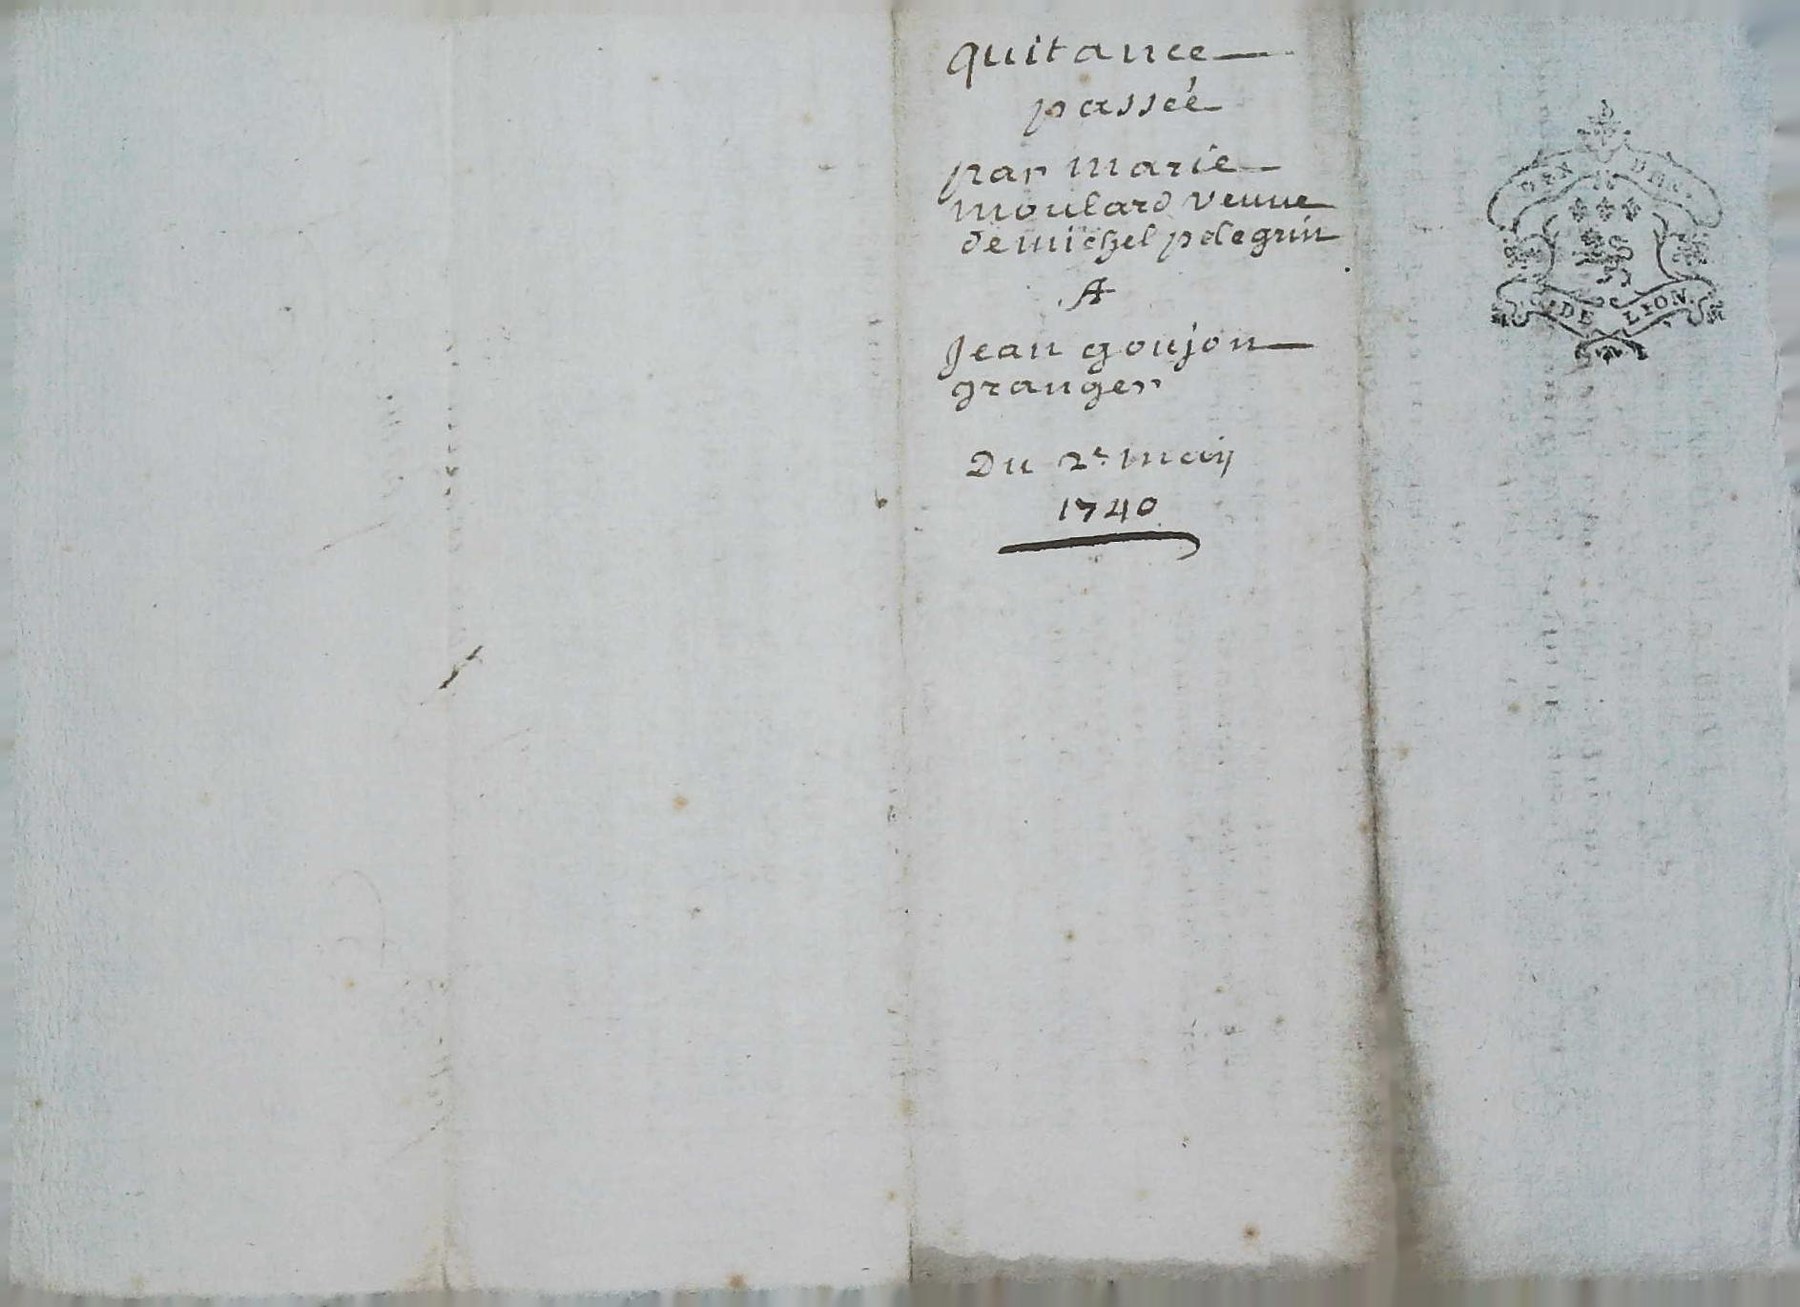 quitance
passée
par marie
moulard veuve
de michel pelegrin
A
Jean goujon
granger
Du 2e may
1740
GEN
DE LION